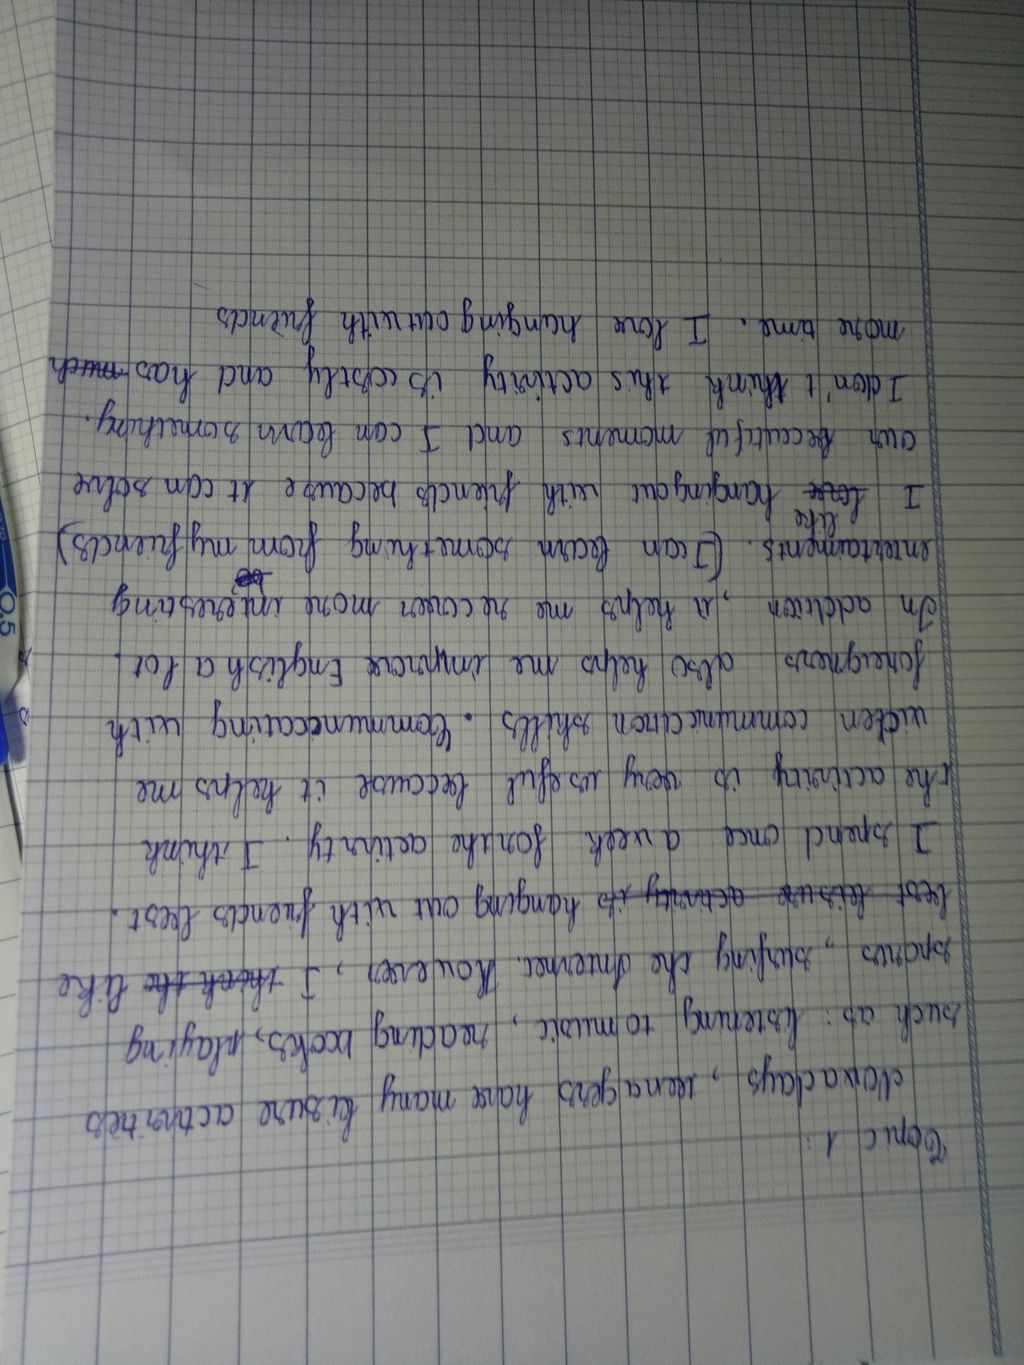 Topic 1:
Nowadays, teenagers have many leisure activities
such as: listening to music, reading books, playing
sports, surfing the Internet. However, I think the like
best leisure activity is hanging out with friends best.
I spend once a week for the activity. I think
the activity is very useful because it helps me
widen communication skills. Communicating with
foreigners also helps me improve English a lot.
In addition, it helps me recover more interesting
entertaiments. (I can learn something from my friends)
like
I love hanging out with friends because it can solve
our beautiful moments and I can learn something.
I don't think this activity is costly and has much
more time. I love hanging out with friends
0.5